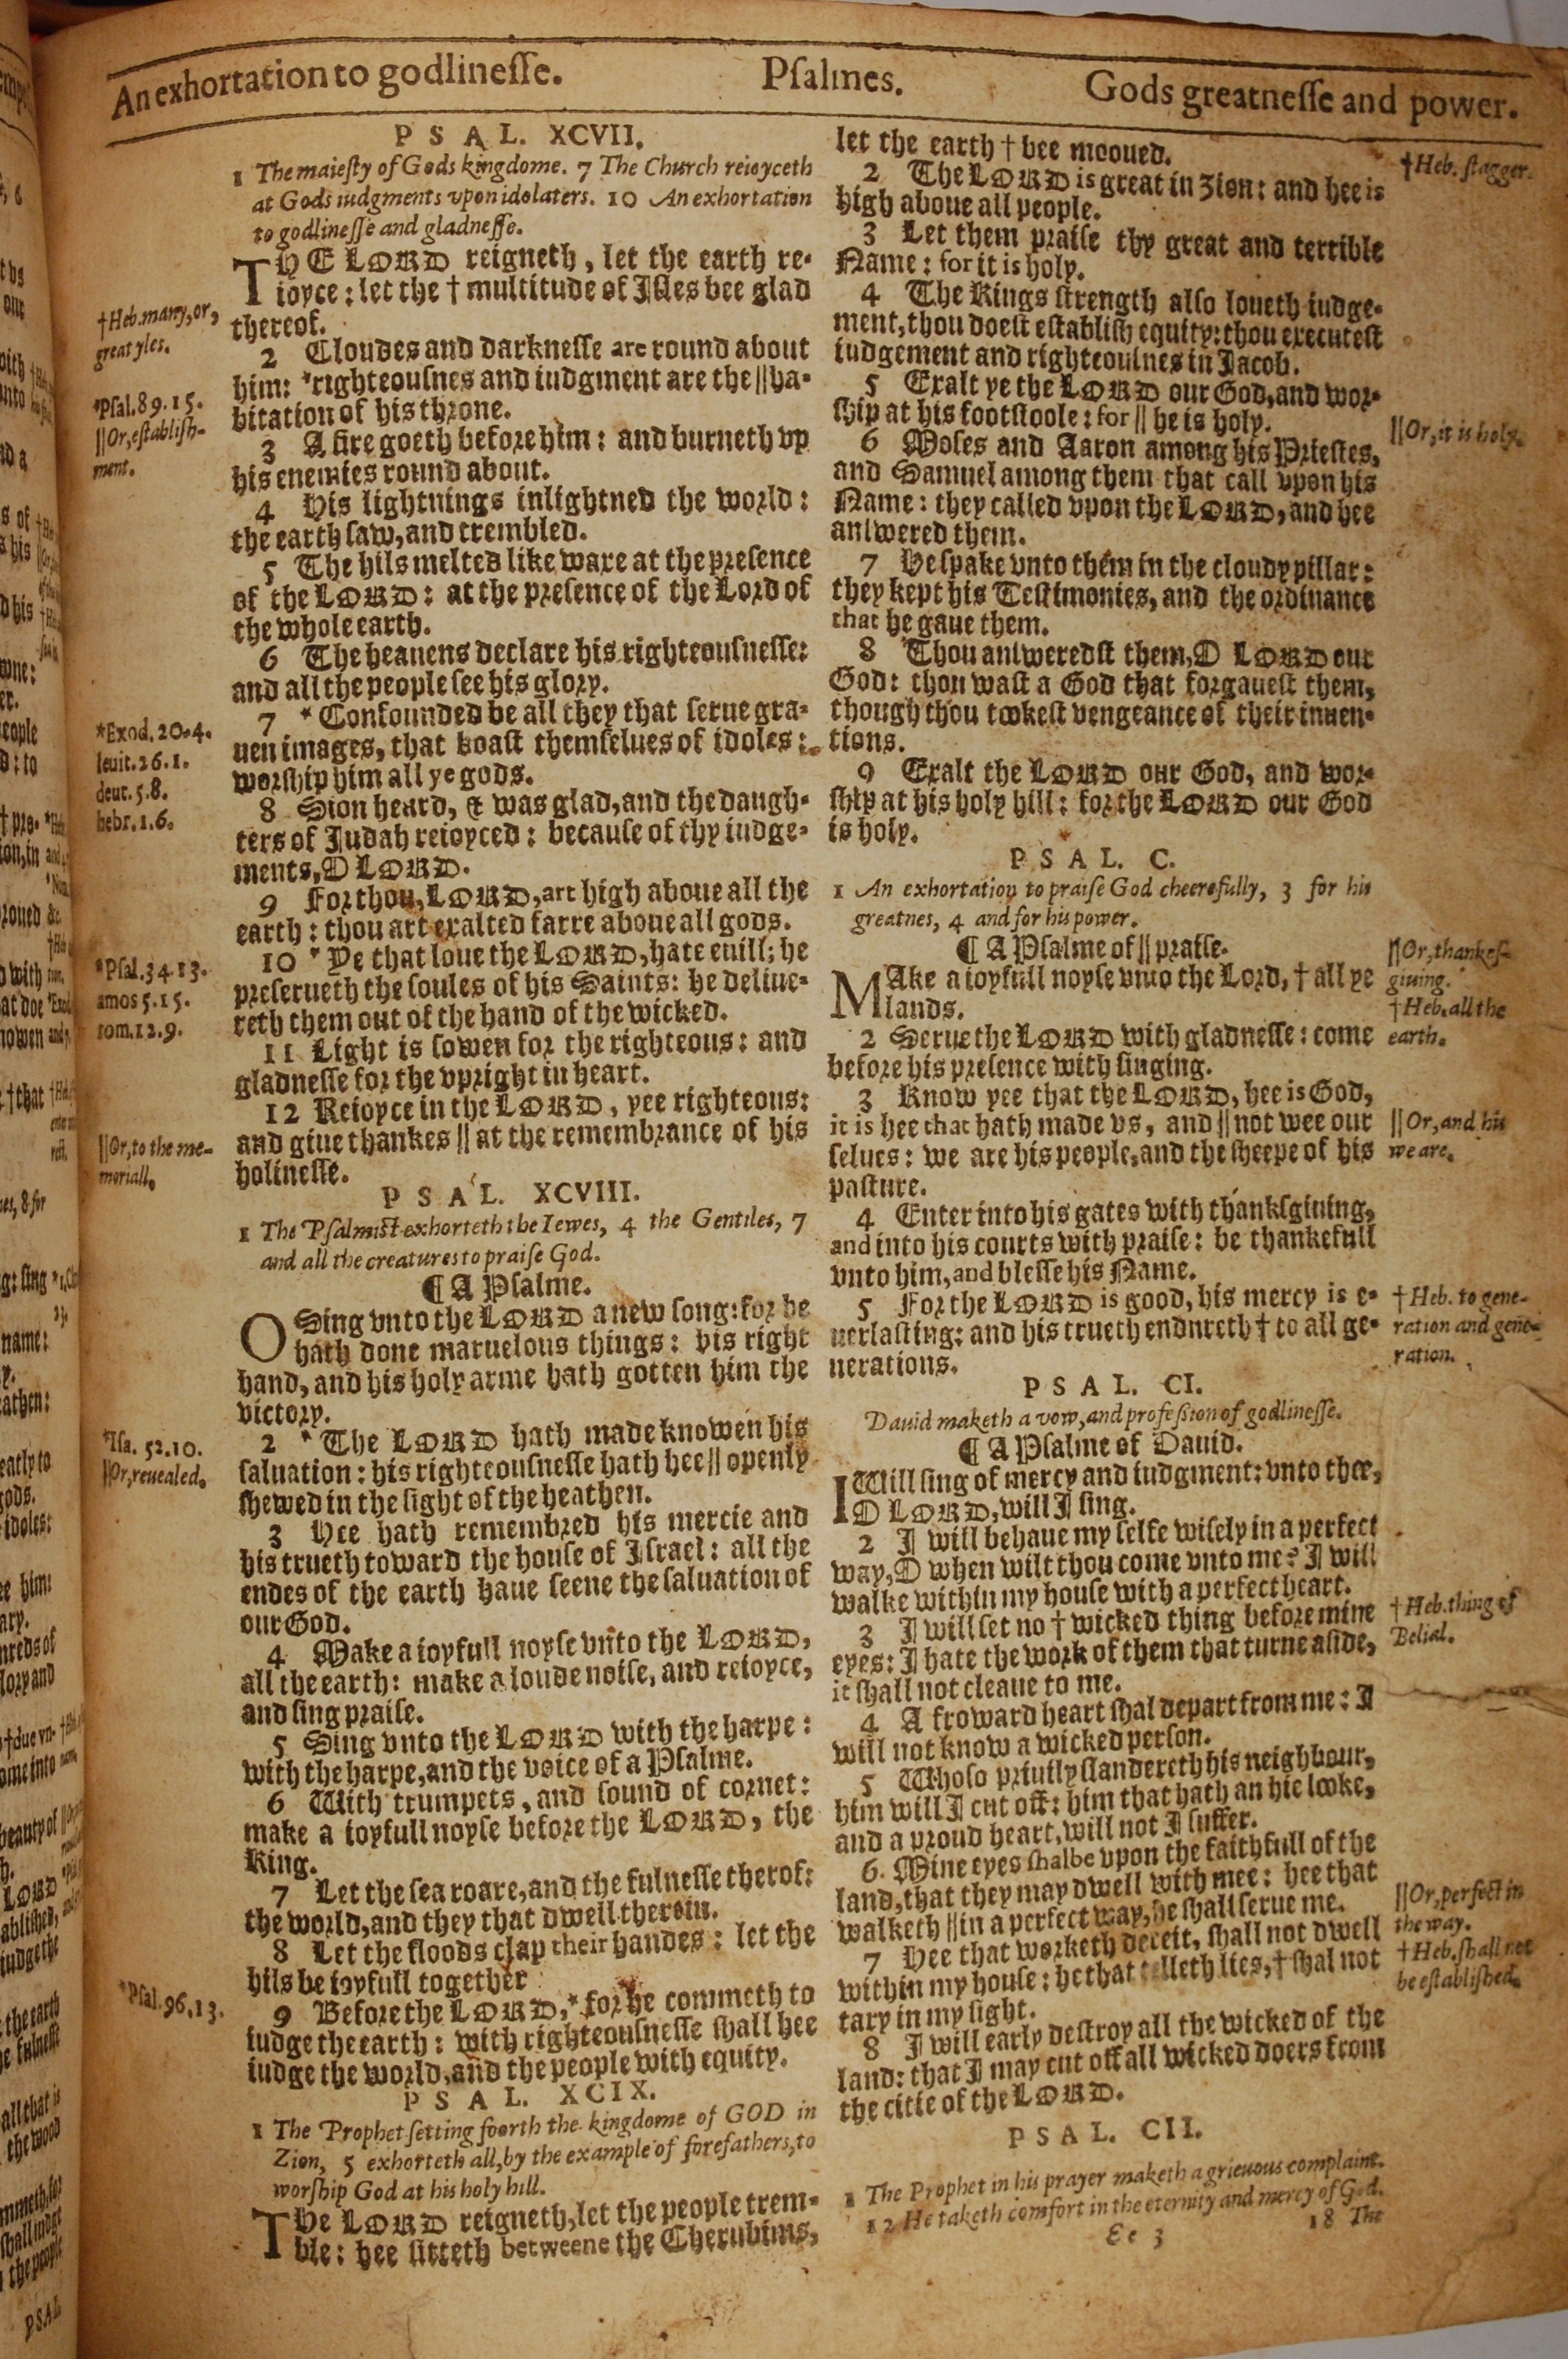 An exhortation to godlinesse.
Psalmes.
Gods greatnesse and power.
PSAL. XCVII.
1 The maiesty of Gods kingdome. 7 The Church reioyceth
at Gods iudgments vpon idolaters. 10 An exhortation
to godlinesse and gladnesse.
THE LORD reigneth, let the earth re-
ioyce: let the † multitude of Isles bee glad
thereof.
2 Cloudes and darknesse are round about
him: *righteousnes and iudgment are the || ha-
bitation of his throne.
3 A fire goeth before him: and burneth vp
his enemies round about.
4 His lightnings inlightned the world:
the earth saw, and trembled.
5 The hils melted like waxe at the presence
of the LORD: at the presence of the Lord of
the whole earth.
6 The heauens declare his righteousnesse:
and all the people see his glory.
7 * Confounded be all they that serue gra-
uen images, that boast themselues of idoles:
worship him all ye gods.
8 Sion heard, & was glad, and the daugh-
ters of Judah reioyced: because of thy iudge-
ments, O LORD.
9 For thou, LORD, art high aboue all the
earth: thou art exalted farre aboue all gods.
10 * Ye that loue the LORD, hate euill; he
preserueth the soules of his Saints: he deliue-
reth them out of the hand of the wicked.
11 Light is sowen for the righteous: and
gladnesse for the vpright in heart.
12 Reioyce in the LORD, yee righteous:
and giue thankes || at the remembrance of his
holinesse.
PSAL. XCVIII.
1 The Psalmist exhorteth the Iewes, 4 the Gentiles, 7
and all the creatures to praise God.
¶ A Psalme.
O Sing vnto the LORD a new song: for he
hath done maruelous things: his right
hand, and his holy arme hath gotten him the
victory.
2 * The LORD hath made knowen his
saluation: his righteousnesse hath hee || openly
shewed in the sight of the heathen.
3 Hee hath remembred his mercie and
his trueth toward the house of Israel: all the
endes of the earth haue seene the saluation of
our God.
4 Make a ioyfull noyse vnto the LORD,
all the earth: make a loude noise, and reioyce,
and sing praise.
5 Sing vnto the LORD with the harpe:
with the harpe, and the voice of a Psalme.
6 With trumpets, and sound of cornet:
make a ioyfull noyse before the LORD, the
King.
7 Let the sea roare, and the fulnesse therof:
the world, and they that dwell therein.
8 Let the floods clap their handes: let the
hils be ioyfull together
9 Before the LORD, * for he commeth to
iudge the earth: with righteousnesse shall hee
iudge the world, and the people with equity.
PSAL. XCIX.
1 The Prophet setting foorth the kingdome of GOD in
Zion, 5 exhorteth all, by the example of forefathers, to
worship God at his holy hill.
THe LORD reigneth, let the people trem-
ble: hee sitteth betweene the Cherubims,
†Heb. many, or,
great yles.
*Psal. 89. 15.
|| Or, establish-
ment.
*Exod. 20. 4.
leuit. 26. 1.
deut. 5. 8.
hebr. 1. 6.
*Psal. 34. 13.
amos 5. 15.
rom. 12. 9.
|| Or, to the me-
moriall.
*Isa. 52. 10.
|| Or, reuealed.
*Psal. 96. 13.
let the earth † bee mooued.
2 The LORD is great in Zion: and hee is
high aboue all people.
3 Let them praise thy great and terrible
Name: for it is holy.
4 The Kings strength also loueth iudge-
ment, thou doest establish equity: thou executest
iudgement and righteousnes in Jacob.
5 Exalt ye the LORD our God, and wor-
ship at his footstoole: for || he is holy.
6 Moses and Aaron among his Priestes,
and Samuel among them that call vpon his
Name: they called vpon the LORD, and hee
answered them.
7 He spake vnto them in the cloudy pillar:
they kept his Testimonies, and the ordinance
that he gaue them.
8 Thou answeredst them, O LORD our
God: thou wast a God that forgauest them,
though thou tookest vengeance of their inuen-
tions.
9 Exalt the LORD our God, and wor-
ship at his holy hill: for the LORD our God
is holy.
PSAL. C.
1 An exhortation to praise God cheerefully, 3 for his
greatnes, 4 and for his power.
¶ A Psalme of || praise.
MAke a ioyfull noyse vnto the Lord, † all ye
lands.
2 Serue the LORD with gladnesse: come
before his presence with singing.
3 Know yee that the LORD, hee is God,
it is hee that hath made vs, and || not wee our
selues: we are his people, and the sheepe of his
pasture.
4 Enter into his gates with thanksgiuing,
and into his courts with praise: be thankefull
vnto him, and blesse his Name.
5 For the LORD is good, his mercy is e-
uerlasting: and his trueth endureth † to all ge-
nerations.
PSAL. CI.
Dauid maketh a vow, and profession of godlinesse.
¶ A Psalme of Dauid.
I Will sing of mercy and iudgment: vnto thee,
O LORD, will I sing.
2 I will behaue my selfe wisely in a perfect
way, O when wilt thou come vnto me? I will
walke within my house with a perfect heart.
3 I will set no † wicked thing before mine
eyes: I hate the work of them that turne aside,
it shall not cleaue to me.
4 A froward heart shal depart from me: I
will not know a wicked person.
5 Whoso priuily slandereth his neighbour,
him will I cut off: him that hath an hie looke,
and a proud heart, will not I suffer.
6. Mine eyes shalbe vpon the faithfull of the
land, that they may dwell with mee: hee that
walketh || in a perfect way, he shall serue me.
7 Hee that worketh deceit, shall not dwell
within my house: he that telleth lies, † shal not
tary in my sight.
8 I will early destroy all the wicked of the
land: that I may cut off all wicked doers from
the citie of the LORD.
PSAL. CII.
1 The Prophet in his prayer maketh a grieuous complaint.
12 He taketh comfort in the eternity and mercy of God.
18 The
Ee 3
†Heb. stagger.
|| Or, it is holy.
|| Or, thankes-
giuing.
†Heb. all the
earth.
|| Or, and his
we are.
†Heb. to gene-
ration and gene-
ration.
†Heb. thing of
Belial.
|| Or, perfect in
the way.
†Heb. shall not
be established.